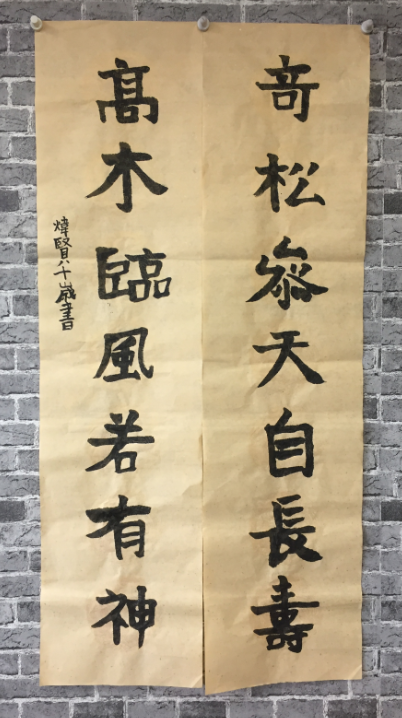 竒松參天自長壽
髙木臨風若有神
煒賢八十歲書